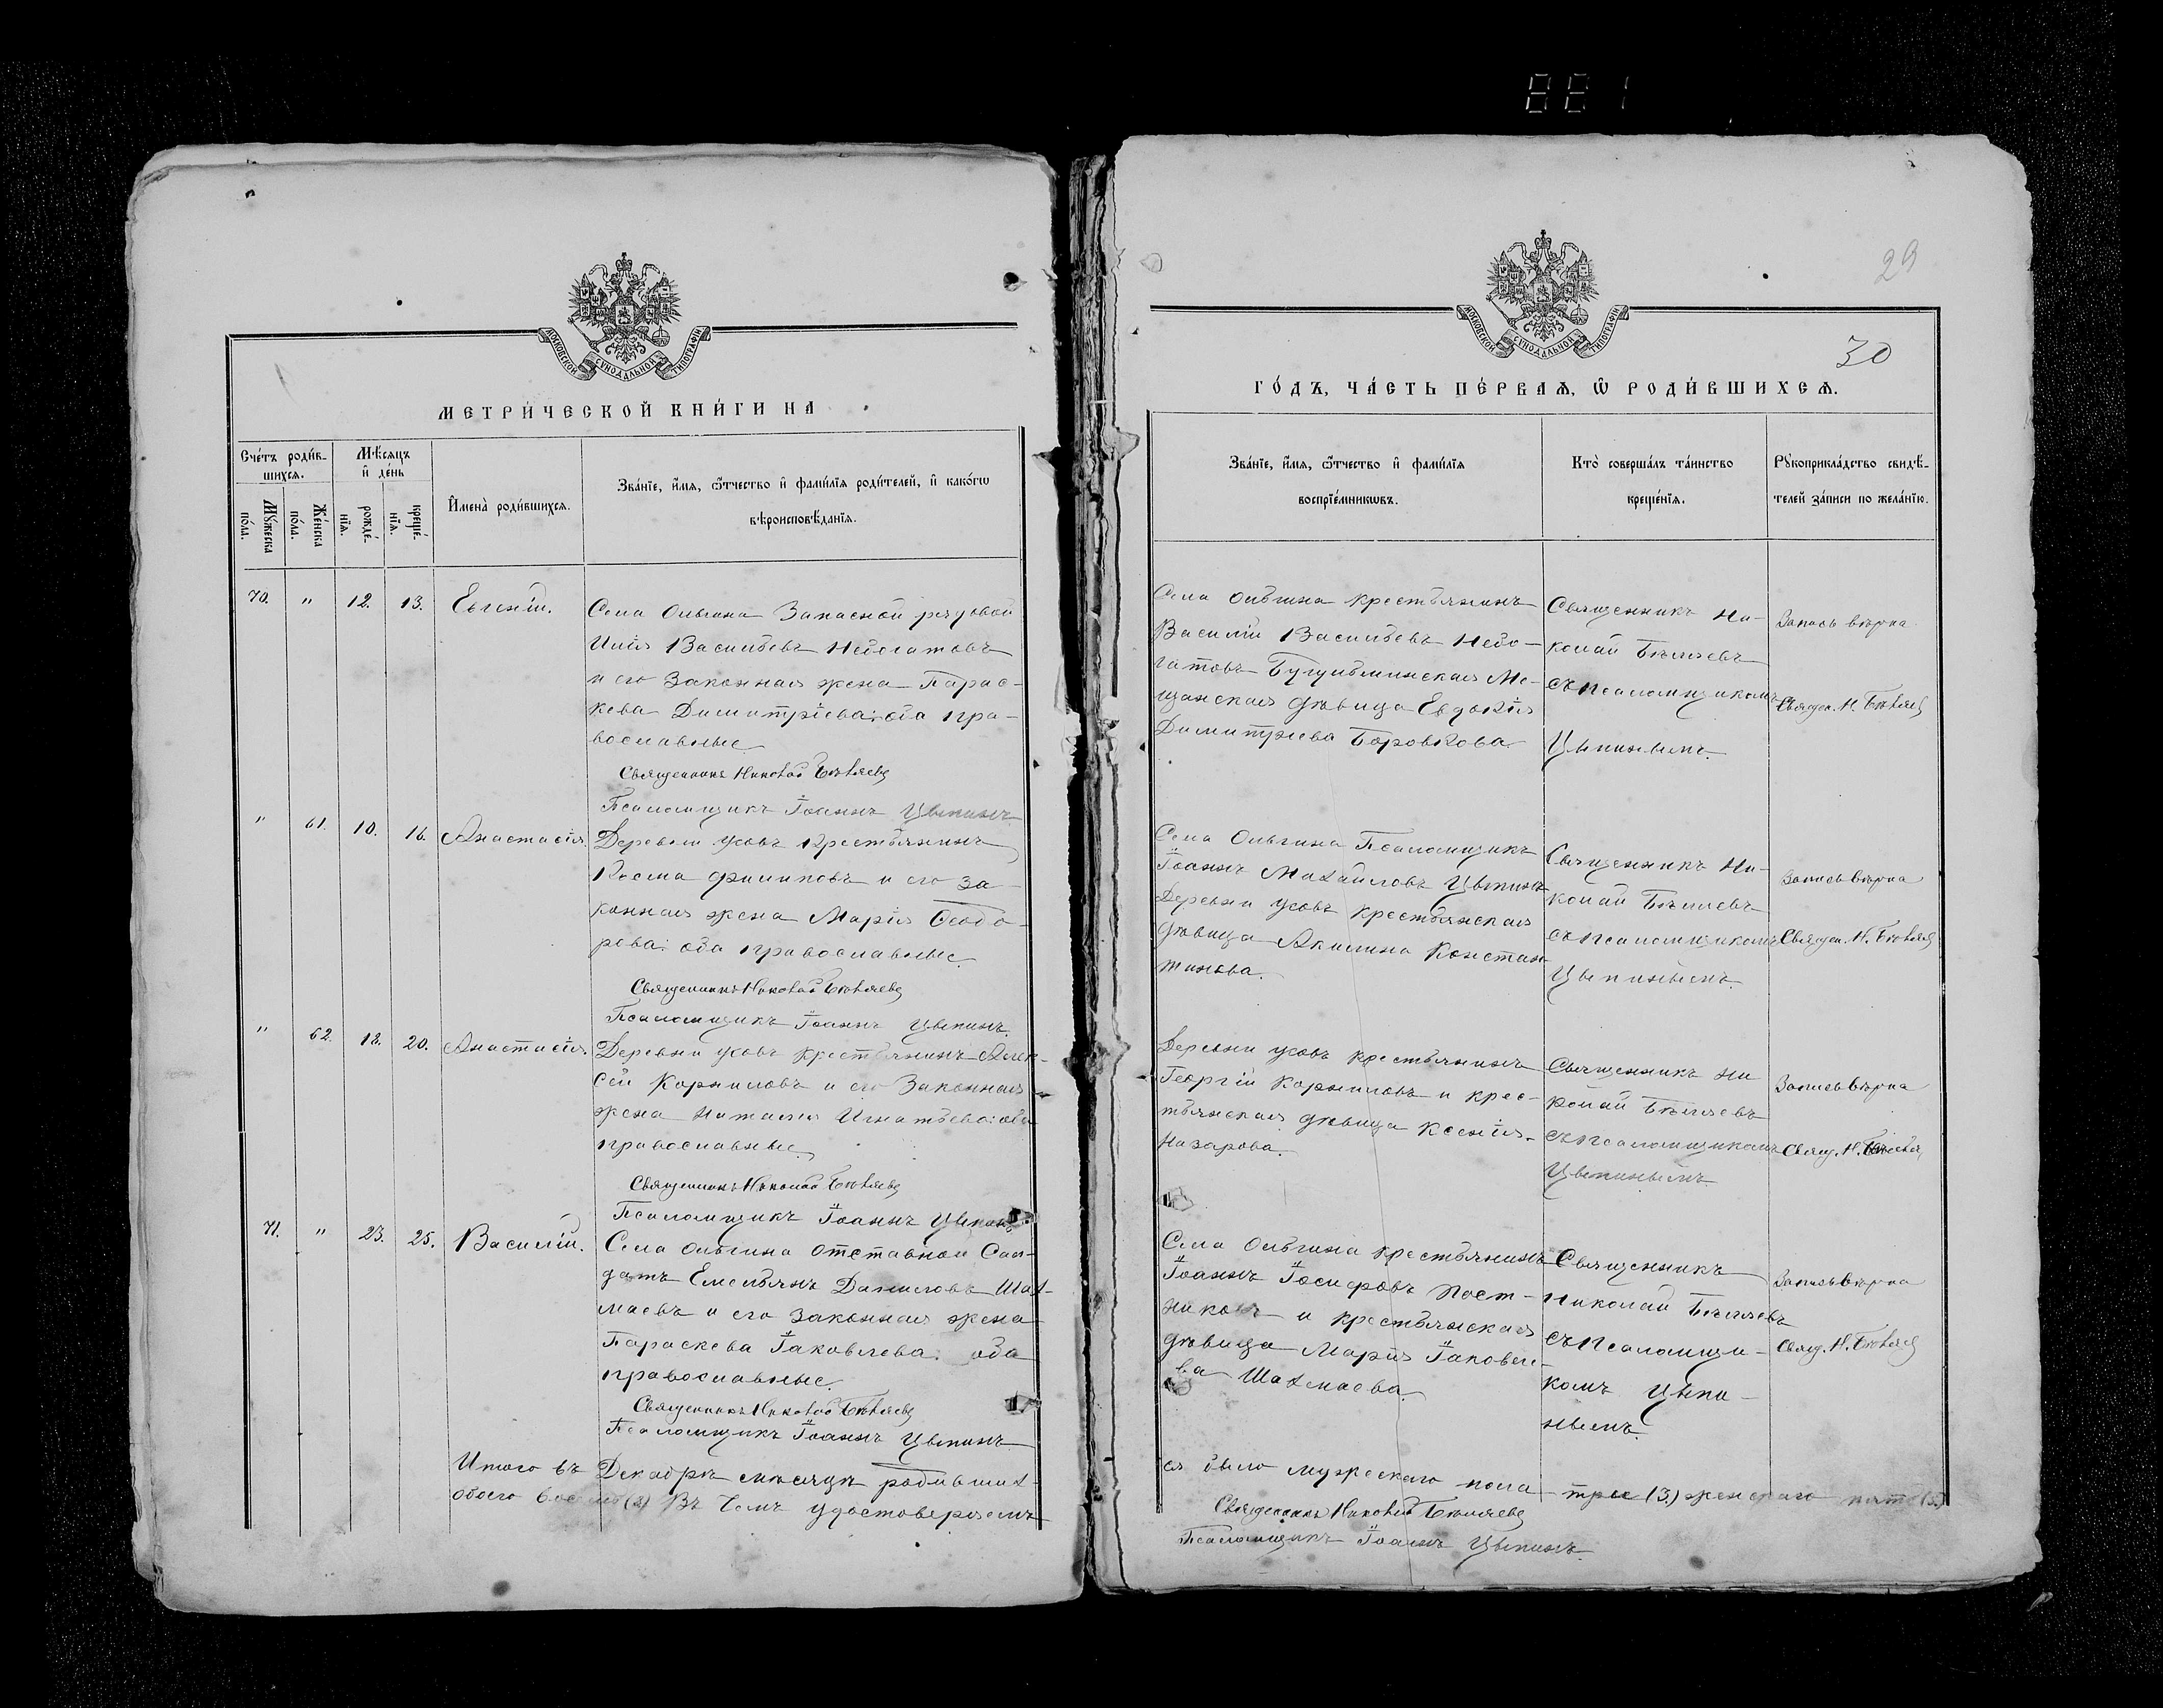 881
МОСКОВСКОЙ СУНОДАЛЬНОЙ ТИПОГРАФІИ
МЕТРИ́ЧЕСКОЙ КНИ́ГИ НА
Сче́тъ роди́в-
шихся.
Мѣ́сяцъ
и҆ де́нь
Му́жеска по́ла.
Же́нска по́ла.
рожде́-
нїя.
креще́-
нїя.
И҆мена̀ роди́вшихся.
Зва́нїе, и҆́мя, ѻ҆́тчество и҆ фами́лїя роди́телей, и҆ како́гѡ
вѣроисповѣ́данїя.
70. " 12. 13. Евгеній.
Села Ольгина Запасной рядовой
Илія Васильевъ Небогатовъ
и его Законная жена Парас-
кева Димитріева: оба пра-
вославные
Священникъ Николай Бѣляевъ
Псаломщикъ Іоаннъ Цыпинъ
" 61. 10. 16. Анастасія.
Деревни Усовъ Крестьянинъ
Косма Филиповъ и его за-
конная жена Марія Ѳеодо-
рова: оба православные.
Священникъ Николай Бѣляевъ
Псаломщикъ Іоаннъ Цыпинъ.
" 62. 18. 20. Анастасія.
Деревни Усовъ крестьянинъ Алек-
сѣй Корниловъ и его Законная
жена Наталія Игнатьева: оба
православные.
Священникъ Николай Бѣляевъ
Псаломщикъ Іоаннъ Цыпинъ
71. " 23. 25. Василій.
Села Ольгина Отставной Сол-
датъ Емельянъ Даниловъ Шах-
маевъ и его законная жена
Параскева Іаковлева: оба
православные.
Священникъ Николай Бѣляевъ
Псаломщикъ Іоаннъ Цыпинъ
Итого въ Декабрѣ мѣсяцѣ родивших-
обоего восемь (8) Въ чемъ удостоверяемъ
29
МОСКОВСКОЙ СУНОДАЛЬНОЙ ТИПОГРАФІИ
30
ГО́ДЪ, ЧА́СТЬ ПЕ́РВАЯ, Ѡ҆ РОДИ́ВШИХСЯ.
Зва́нїе, и҆́мя, ѻ҆́тчество и҆ фами́лїя
воспрїе́мникѡвъ.
Кто̀ соверша́лъ та́инство
креще́нїя.
Рꙋкоприкла́дство свидѣ́-
телей за́писи по жела́нїю.
Села Ольгина крестьянинъ
Василій Васильевъ Небо-
гатовъ Бугульминская Ме-
щанская дѣвица Евдокія
Димитріева Боровкова
Священникъ Ни-
колай Бѣляевъ
съ псаломщикомъ
Цыпинымъ.
Запись вѣрна
Священ. Н. Бѣляевъ
Села Ольгина Псаломщикъ
Іоаннъ Михайловъ Цыпинъ
Деревни Усовъ крестьянская
дѣвица Акилина Констан-
тинова.
Священникъ Ни-
колай Бѣляевъ
съ псаломщикомъ
Цыпинымъ.
Запись вѣрна
Священ. Н. Бѣляевъ
Деревни Усовъ крестьянинъ
Георгій Корниловъ и крес-
тьянская дѣвица Ксенія
Назарова.
Священникъ Ни
колай Бѣляевъ
съ псаломщикомъ
Цыпинымъ.
Запись вѣрна
Свящ. Н. Бѣляевъ
Села Ольгина крестьянинъ
Іоаннъ Іосифовъ Пост-
никовъ и крестьянская
дѣвица Марія Іаковле-
ва Шахмаева.
Священникъ
Николай Бѣляевъ
съ псаломщи-
комъ Цыпи-
нымъ.
Запись вѣрна
Свящ. Н. Бѣляевъ
ся было мужескаго пола три (3.) женскаго пять (5.)
Священникъ Николай Бѣляевъ
Псаломщикъ Іоаннъ Цыпинъ.